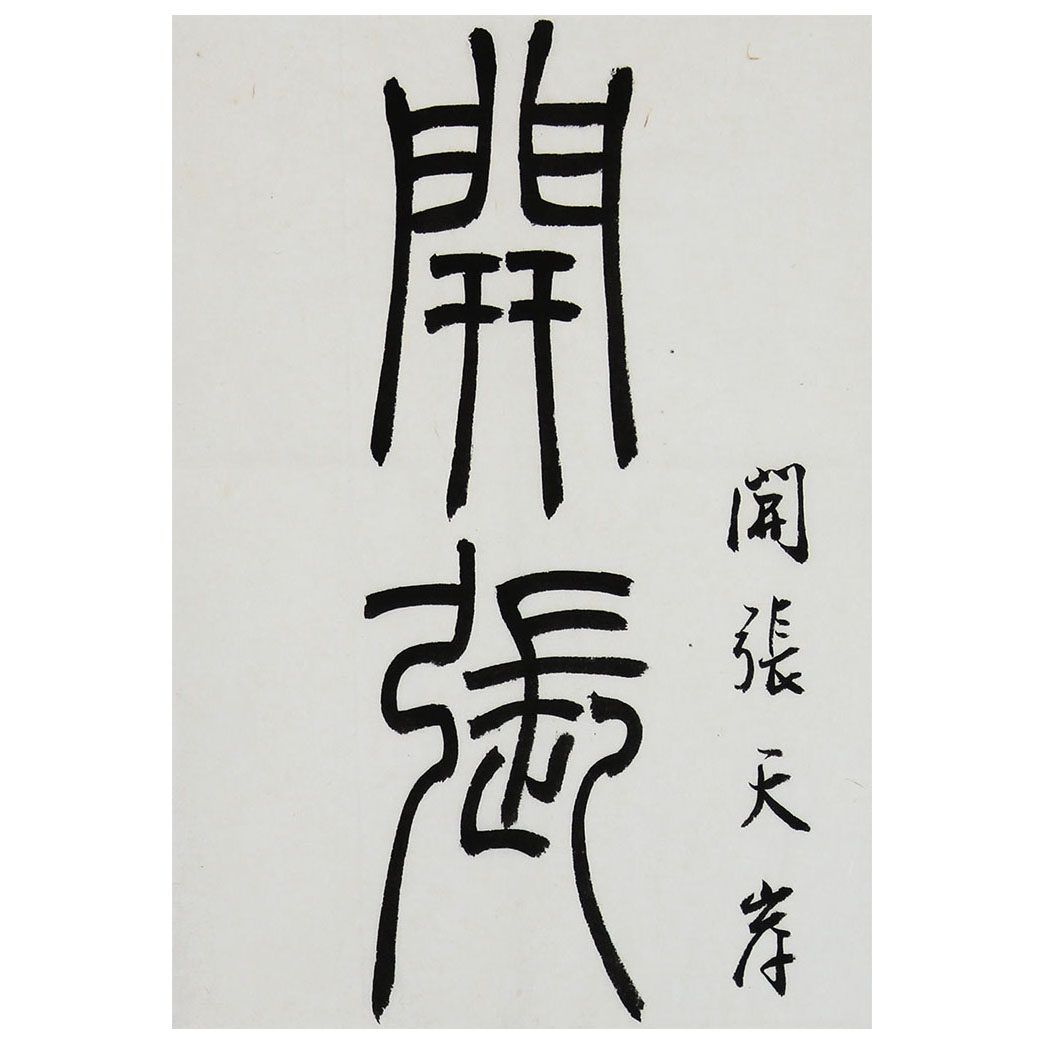 開張天岸
開張